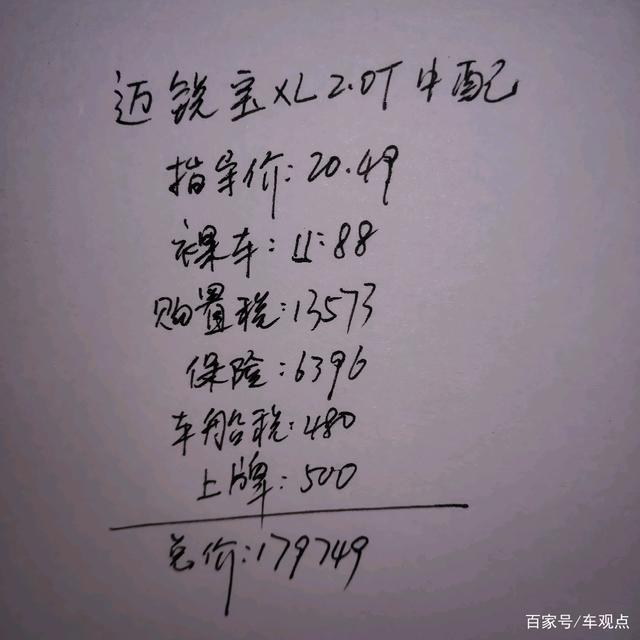 迈锐宝XL2.0T中配
指导价:20.49
裸车:11:88
购置税:13573
保险:6396
车船税:480
上牌:500
总价:179749
百家号/车观点